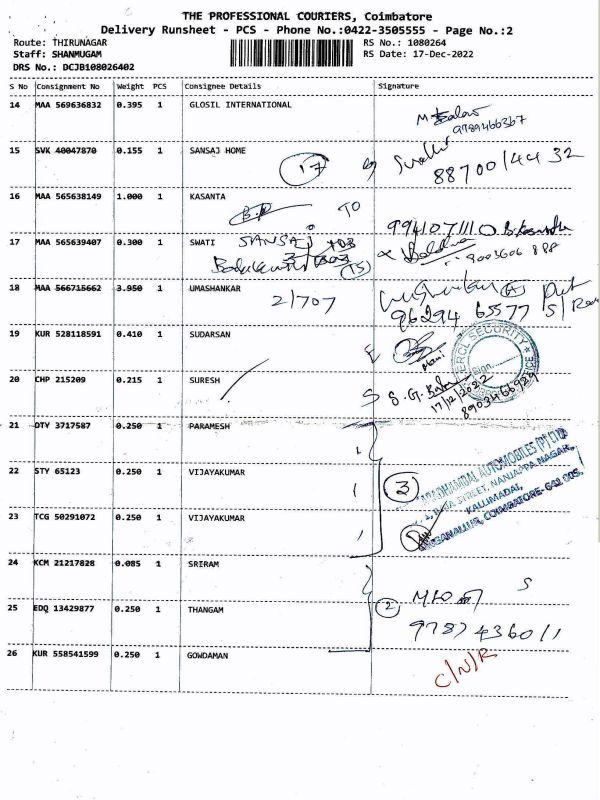 THE PROFESSIONAL COURIERS, Coimbatore
Delivery Runsheet - PCS - Phone No.:0422-3505555 - Page No.:2
Route: THIRUNAGAR
Staff: SHANMUGAM
DRS No.: DCJB108026402
RS No.: 1080264
RS Date: 17-Dec-2022
S No Consignment No Weight PCS Consignee Details Signature
14 MAA 569636832 0.395 1 GLOSIL INTERNATIONAL
9789466367
15 SVK 40047870 0.155 1 SANSAJ HOME
17
88700 14432
16 MAA 565638149 1.000 1 KASANTA
TO
9941071110
17 MAA 565639407 0.300 1 SWATI SANSAJ
9003606898
18 MAA 566715662 3.950 1 UMASHANKAR
2/707
96294 65577
19 KUR 528118591 0.410 1 SUDARSAN
Mani
SECURITY
20 CHP 215209 0.215 1 SURESH
S
17/12/2022
8903466929
21 DTY 3717587 0.250 1 PARAMESH
22 STY 65123 0.250 1 VIJAYAKUMAR
3
AUTOMOBILES (P) LTD
STREET, NANJAPPA NAGAR,
KALLIMADAI,
SINGANALLUR, COIMBATORE-641 005.
23 TCG 50291072 0.250 1 VIJAYAKUMAR
24 KCM 21217828 0.085 1 SRIRAM
S
25 EDQ 13429877 0.250 1 THANGAM
2
9787436011
26 KUR 558541599 0.250 1 GOWDAMAN
C/N/R